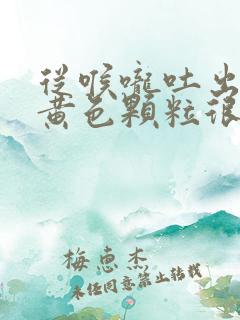 從喉嚨吐出
黃色顆粒很
梅惠杰
未經同意禁止轉載